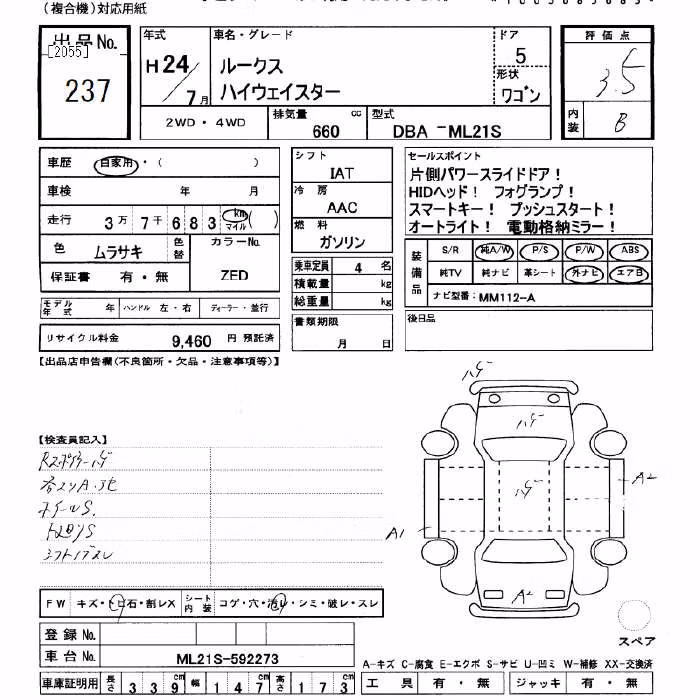 (複合機)対応用紙
出品No.
[2055]
237
年式
H24/7月
車名・グレード
ルークス
ハイウェイスター
ドア
5
形状
ワゴン
評価点
3.5
内装
B
2WD・4WD
排気量
660 cc
型式
DBA -ML21S
車歴
自家用・( )
車検 年 月
走行 3万7千683 km マイル ( )
色 ムラサキ 色替
カラーNo.
ZED
保証書 有・無
モデル年式 年 ハンドル 左・右 ディーラー・並行
リサイクル料金 9,460 円 預託済
シフト
IAT
冷房
AAC
燃料
ガソリン
乗車定員 4 名
積載量 kg
総重量 kg
書類期限
月 日
セールスポイント
片側パワースライドドア!
HIDヘッド! フォグランプ!
スマートキー! プッシュスタート!
オートライト! 電動格納ミラー!
装備品
S/R 純A/W P/S P/W ABS
純TV 純ナビ 革シート 外ナビ エアB
ナビ型番:MM112-A
後日品
【出品店申告欄(不良箇所・欠品・注意事項等)】
【検査員記入】
ホイールS
ハゲ
ハゲ
ハゲ
A2
A1
A2
スペア
FW キズ・トビ石・割レX シート内装 コゲ・穴・汚レ・シミ・破レ・スレ
登録No.
車台No. ML21S-592273
車庫証明用 長さ 339cm 幅 147cm 高さ 173cm
A-キズ C-腐食 E-エクボ S-サビ U-凹ミ W-補修 XX-交換済
工具 有・無 ジャッキ 有・無